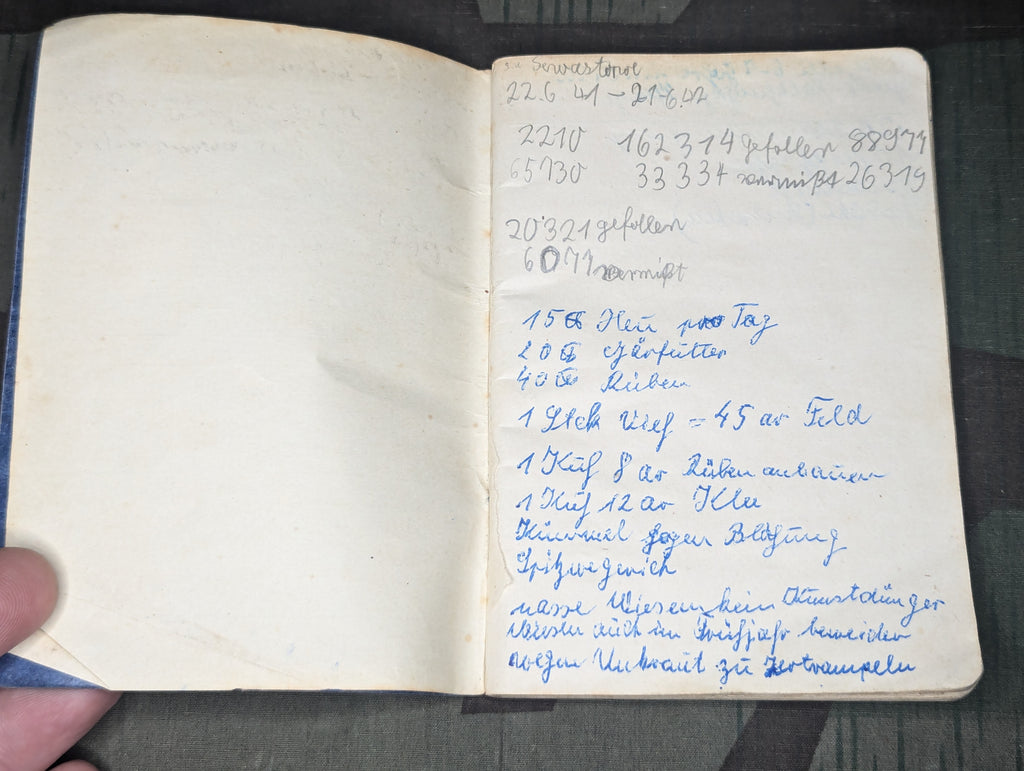 Sewastopol
22.6 41 – 21.6.42
2210 162314 gefallen 88977
65730 33334 vermißt 26319
20'321 gefallen
6077 vermißt
15 ℔ Heu pro Tag
20 ℔ Gärfutter
40 ℔ Rüben
1 Stck Vieh = 45 ar Feld
1 Kuh 8 ar Rüben anbauen
1 Kuh 12 ar Klee
Kümmel gegen Blähung
Spitzwegerich
nasse Wiesen kein Kunstdünger
Wiesen auch im Frühjahr beweiden
wegen Unkraut zu zertrampeln